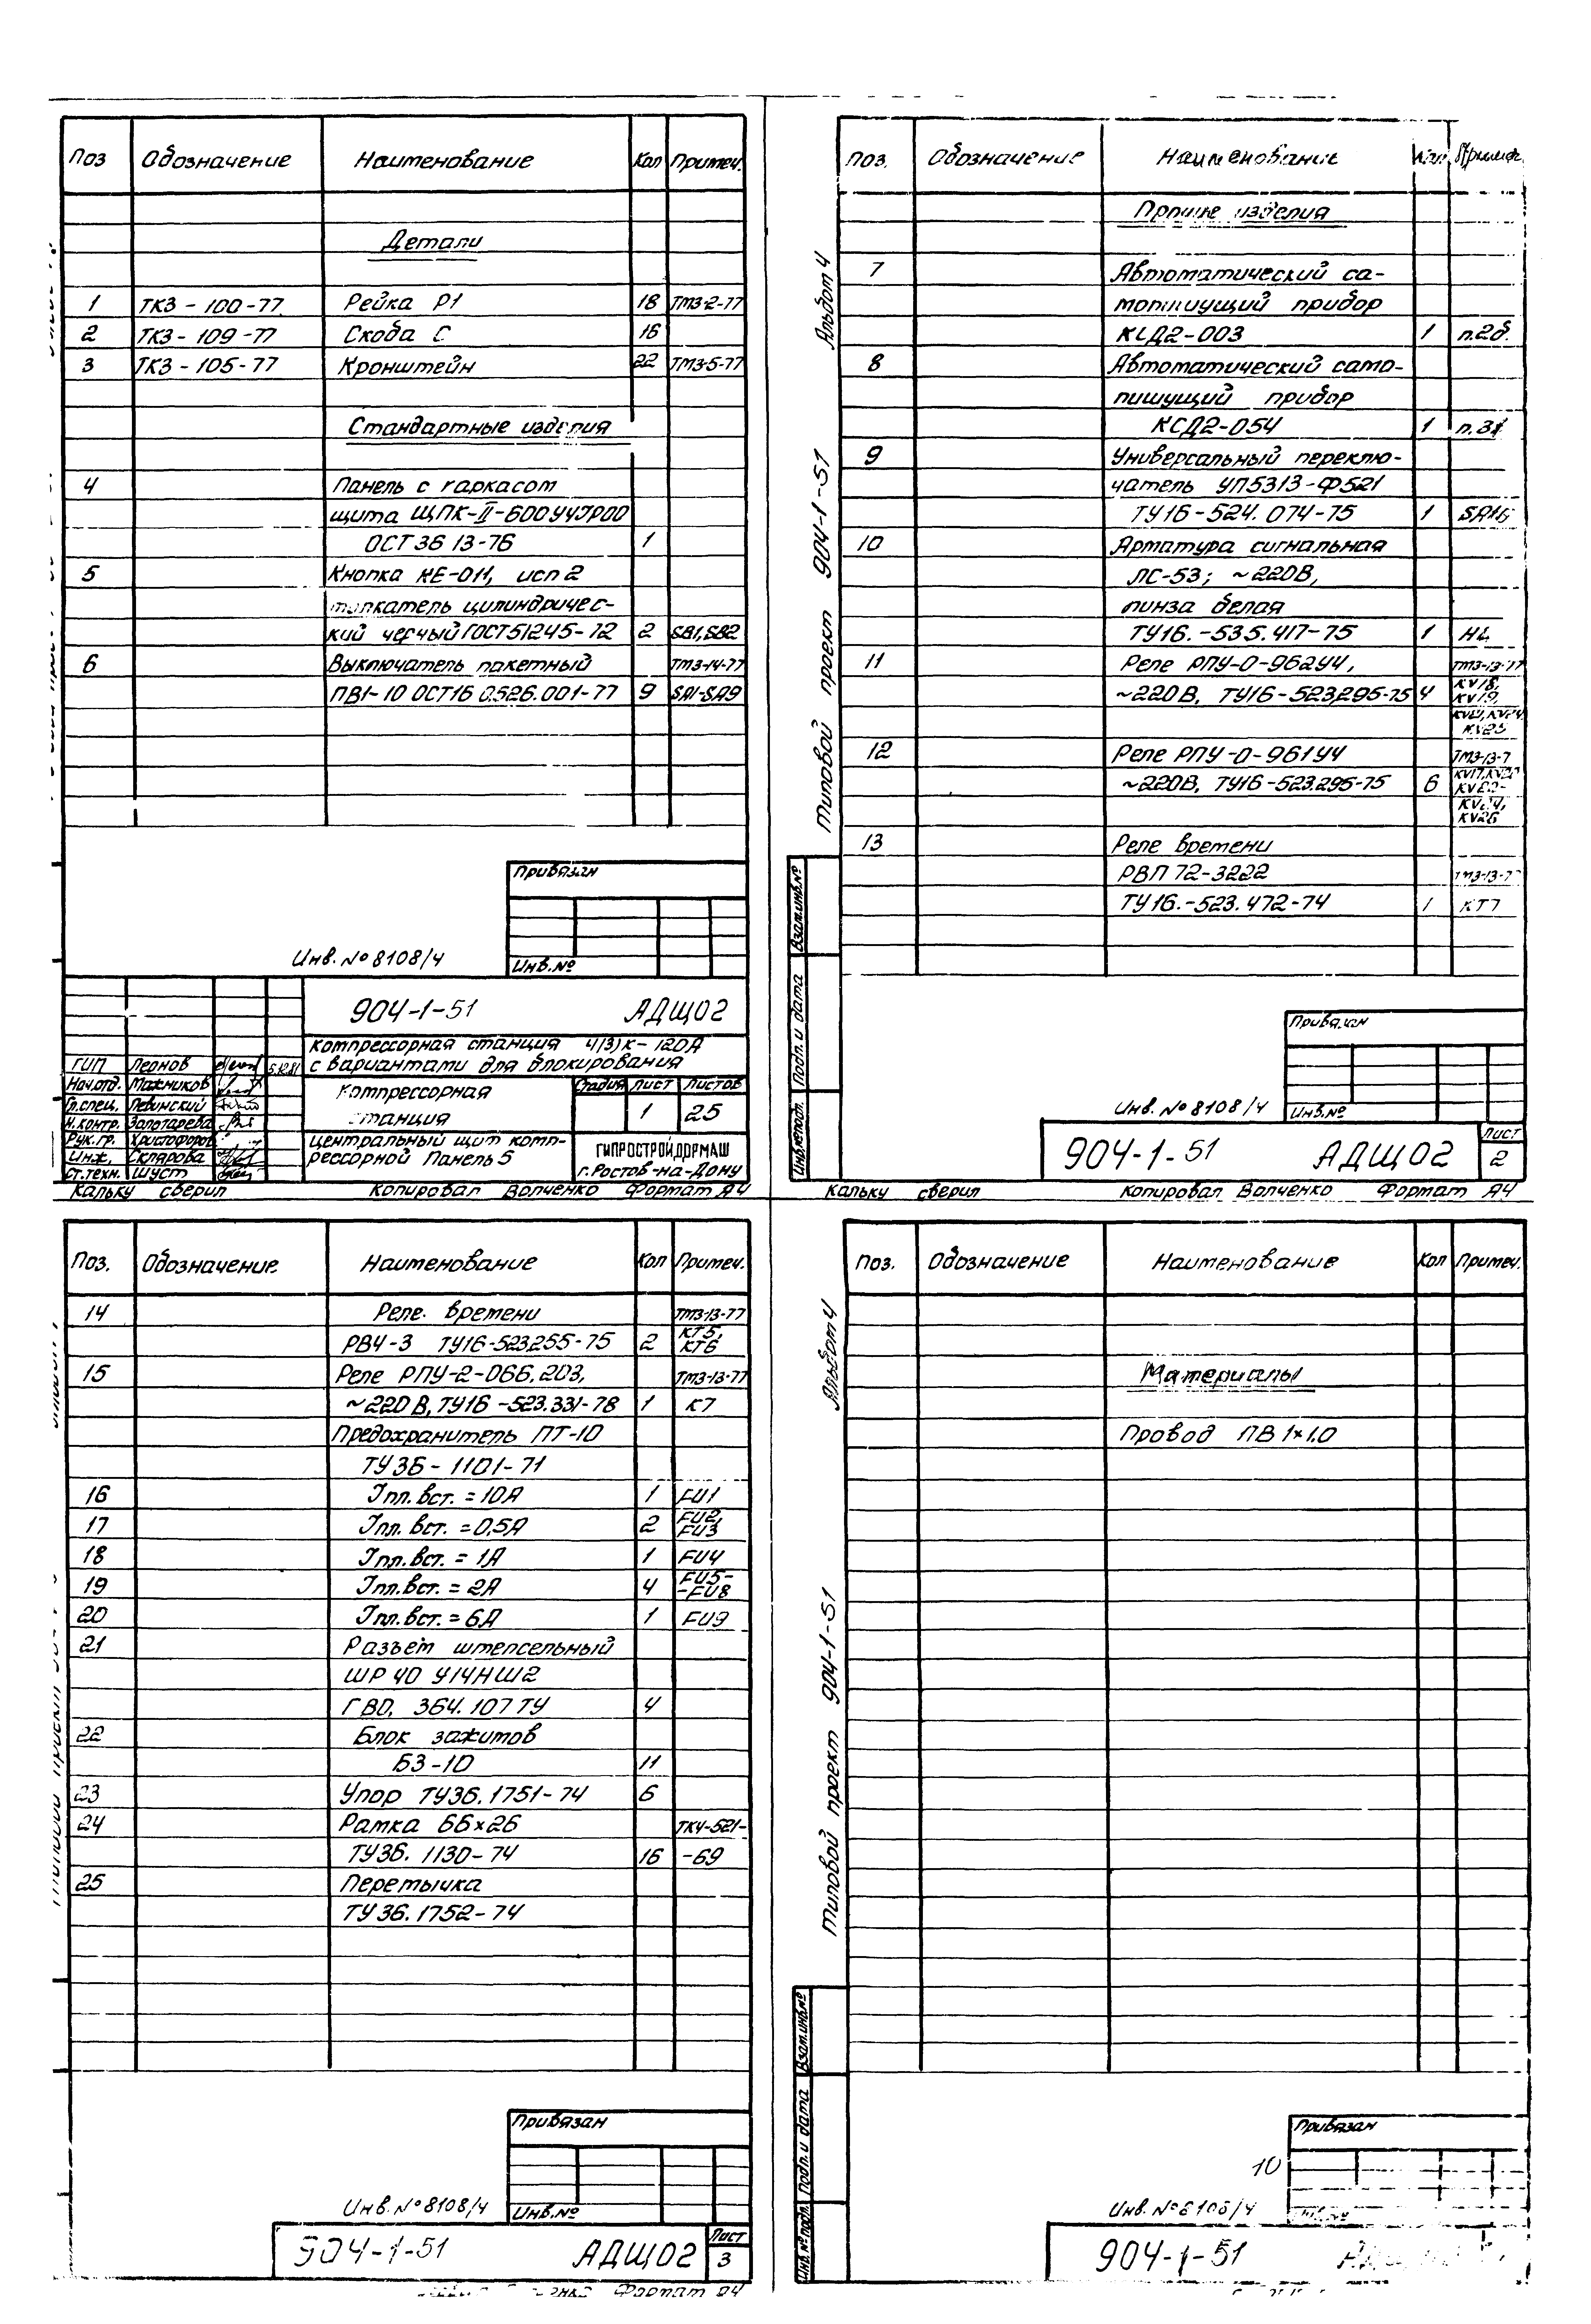 Поз Обозначение Наименование Кол Примеч.
Детали
1 ТКЗ-100-77 Рейка Р1 18 ТМЗ-2-77
2 ТКЗ-109-77 Скоба С 16
3 ТКЗ-105-77 Кронштейн 22 ТМЗ-5-77
Стандартные изделия
4 Панель с каркасом
щита ЩПК-II-600У4JР00
ОСТ 36 13-76 1
5 Кнопка КЕ-011, исп 2
толкатель цилиндричес-
кий черный ГОСТ 51245-72 2 SB1, SB2
6 Выключатель пакетный ТМЗ-14-77
ПВ1-10 ОСТ16 0.526.001-77 9 SA1-SA9
Привязан
Инв. № 8108/4
Инв.№
904-1-51 АДЩ02
Компрессорная станция 4(3)К-120А
с вариантами для блокирования
ГИП Леонов 5.12.81
Нач.отд. Мажников
Гл.спец. Левинский
Н.контр. Золотарева
Рук.гр. Христофоров
Инж. Склярова
Ст.техн. Шуст
Компрессорная
станция
Стадия Лист Листов
1 25
Центральный щит комп-
рессорной Панель 5
ГИПРОСТРОЙДОРМАШ
г.Ростов-на-Дону
Кальку сверил Копировал Волченко Формат А4
Поз. Обозначение Наименование Кол Примеч.
Прочие изделия
7 Автоматический са-
мопишущий прибор
КСД2-003 1 п.2б.
8 Автоматический само-
пишущий прибор
КСД2-054 1 п.31
9 Универсальный переклю-
чатель УП5313-Ф521
ТУ16-524.074-75 1 SA16
10 Арматура сигнальная
ЛС-53; ~220В,
линза белая
ТУ16.-535.417-75 1 HL
11 Реле РПУ-0-962У4, ТМЗ-13-77
~220В, ТУ16-523.295-75 4 KV18, KV19,
KV25
12 Реле РПУ-0-961У4 ТМЗ-13-7
~220В, ТУ16-523.295-75 6 KV17, KV20
KV26
13 Реле времени
РВП 72-3222 ТМЗ-13-7
ТУ16.-523.472-74 1 КТ7
Альбом 4
Типовой проект 904-1-51
Взам.инв.№
Подп. и дата
Инв.№подл.
Привязан
Инв. № 8108/4
Инв.№
904-1-51 АДЩ02
Лист
2
Кальку сверил Копировал Волченко Формат А4
Поз. Обозначение Наименование Кол Примеч.
14 Реле времени ТМЗ-13-77
РВЧ-3 ТУ16-523255-75 2 КТ5, КТ6
15 Реле РПУ-2-066.203, ТМЗ-13-77
~220В, ТУ16-523.331-78 1 К7
Предохранитель ПТ-10
ТУ36-1101-71
16 Iпл.вст. = 10А 1 FU1
17 Iпл.вст. = 0,5А 2 FU2, FU3
18 Iпл.вст. = 1А 1 FU4
19 Iпл.вст. = 2А 4 FU5--FU8
20 Iпл.вст. = 6А 1 FU9
21 Разъем штепсельный
ШР 40 У14НШ2
ГВ0.364.107 ТУ 4
22 Блок зажимов
БЗ-10 11
23 Упор ТУ36.1751-74 6
24 Рамка 66×26 ТК4-521-
ТУ36.1130-74 16 -69
25 Перемычка
ТУ36.1752-74
Привязан
Инв. №8108/4
Инв.№
904-1-51 АДЩ02
Лист
3
Формат А4
Поз. Обозначение Наименование Кол Примеч.
Материалы
Провод ПВ 1×1.0
Альбом 4
Типовой проект 904-1-51
Взам.инв№
Подп. и дата
Инв.№ подл.
Привязан
10
Инв. №8108/4
904-1-51